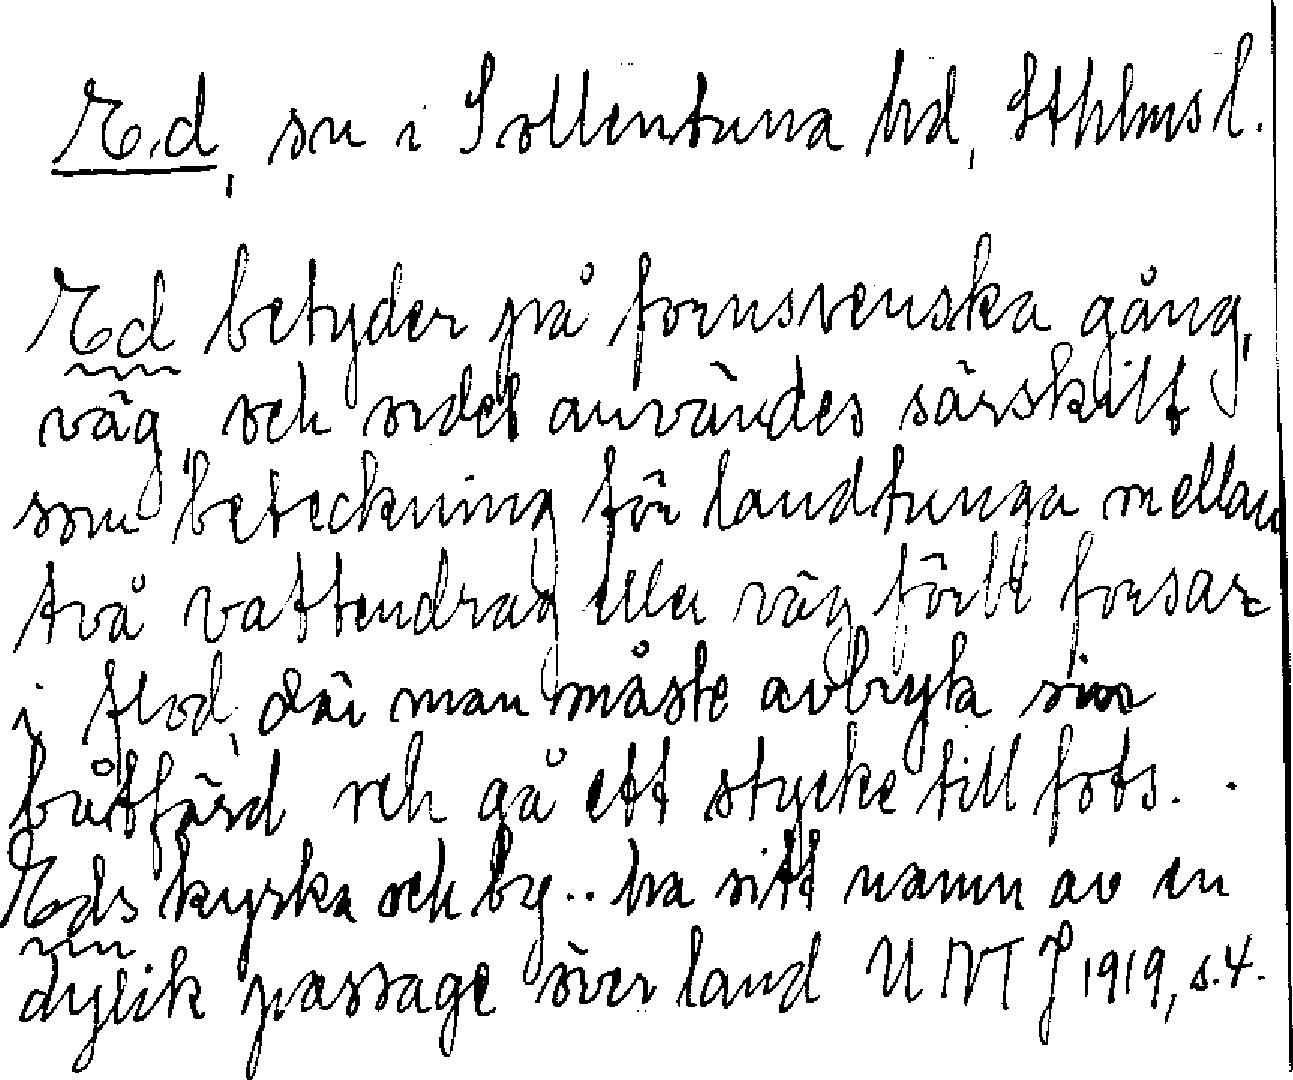 Ed, sn i Sollentuna hd, Sthlms l.
Ed betyder på fornsvenska gång,
väg, och ordet användes särskilt
som beteckning för landtunga mellan
två vattendrag eller väg förbi forsar
i flod, där man måste avbryta sin
båtfärd och gå ett stycke till fots. .
Eds kyrka och by .. ha sitt namn av en
dylik passage över land UNT J 1919, s. 4.